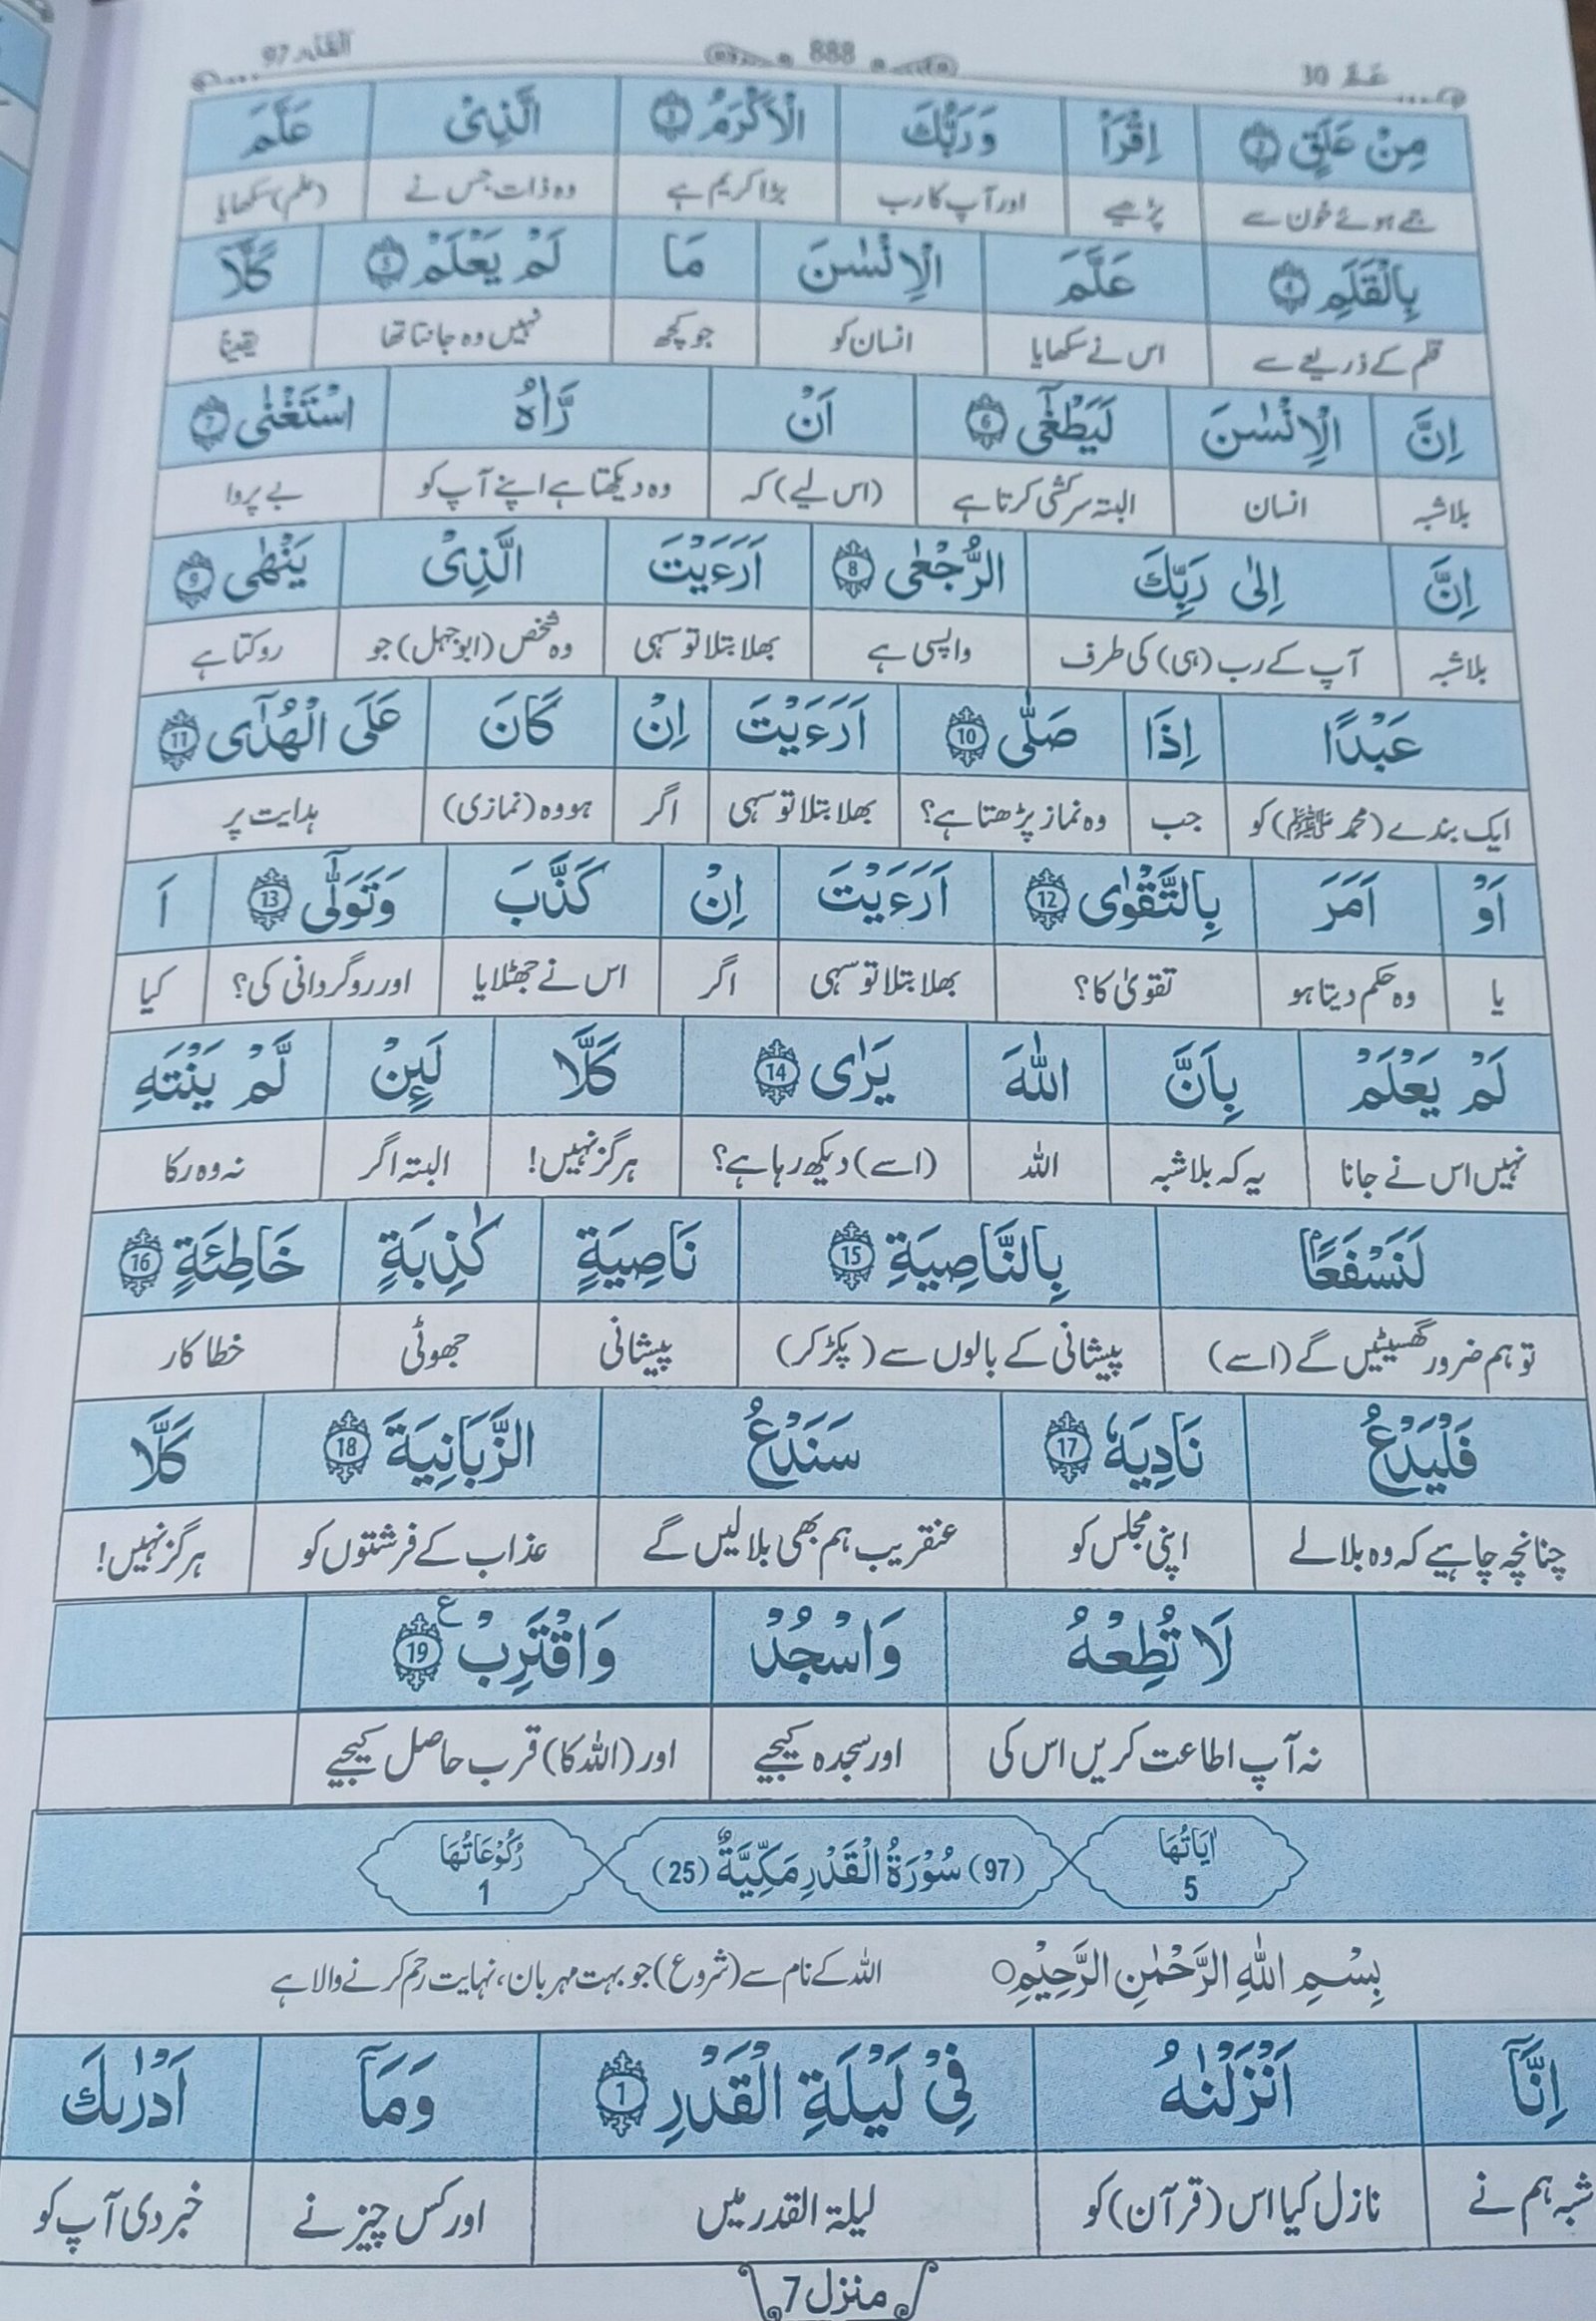 عَمَّ 30 888 اَلْقَدْر 97
مِنْ عَلَقٍ 2 اِقْرَاْ وَرَبُّكَ الْاَكْرَمُ 3 الَّذِیْ عَلَّمَ
جمے ہوئے خون سے پڑھیے اور آپ کا رب بڑا کریم ہے وہ ذات جس نے (علم) سکھایا
بِالْقَلَمِ 4 عَلَّمَ الْاِنْسٰنَ مَا لَمْ یَعْلَمْ 5 كَلَّاۤ
قلم کے ذریعے سے اس نے سکھایا انسان کو جو کچھ نہیں وہ جانتا تھا یقیناً
اِنَّ الْاِنْسٰنَ لَیَطْغٰۤی 6 اَنْ رَّاٰهُ اسْتَغْنٰی 7
بلاشبہ انسان البتہ سرکشی کرتا ہے (اس لیے) کہ وہ دیکھتا ہے اپنے آپ کو بے پروا
اِنَّ اِلٰی رَبِّكَ الرُّجْعٰی 8 اَرَءَیْتَ الَّذِیْ یَنْهٰی 9
بلاشبہ آپ کے رب (ہی) کی طرف واپسی ہے بھلا بتلا تو سہی وہ شخص (ابوجہل) جو روکتا ہے
عَبْدًا اِذَا صَلّٰی 10 اَرَءَیْتَ اِنْ كَانَ عَلَی الْهُدٰۤی 11
ایک بندے (محمد ﷺ) کو جب وہ نماز پڑھتا ہے؟ بھلا بتلا تو سہی اگر ہو وہ (نمازی) ہدایت پر
اَوْ اَمَرَ بِالتَّقْوٰی 12 اَرَءَیْتَ اِنْ كَذَّبَ وَتَوَلّٰۤی 13 اَ
یا وہ حکم دیتا ہو تقویٰ کا؟ بھلا بتلا تو سہی اگر اس نے جھٹلایا اور روگردانی کی؟ کیا
لَمْ یَعْلَمْ بِاَنَّ اللّٰهَ یَرٰی 14 كَلَّا لَىِٕنْ لَّمْ یَنْتَهِ
نہیں اس نے جانا یہ کہ بلاشبہ اللہ (اسے) دیکھ رہا ہے؟ ہرگز نہیں! البتہ اگر نہ وہ رکا
لَنَسْفَعًۢا بِالنَّاصِیَةِ 15 نَاصِیَةٍ كٰذِبَةٍ خَاطِئَةٍ 16
تو ہم ضرور گھسیٹیں گے (اسے) پیشانی کے بالوں سے (پکڑ کر) پیشانی جھوٹی خطا کار
فَلْیَدْعُ نَادِیَهٗ 17 سَنَدْعُ الزَّبَانِیَةَ 18 كَلَّا
چنانچہ چاہیے کہ وہ بلا لے اپنی مجلس کو عنقریب ہم بھی بلا لیں گے عذاب کے فرشتوں کو ہرگز نہیں!
لَا تُطِعْهُ وَاسْجُدْ وَاقْتَرِبْ 19 ع
نہ آپ اطاعت کریں اس کی اور سجدہ کیجیے اور (اللہ کا) قرب حاصل کیجیے
اٰیَاتُهَا 5 (97) سُوْرَةُ الْقَدْرِ مَكِّیَّةٌ (25) رُكُوْعَاتُهَا 1
بِسْمِ اللّٰهِ الرَّحْمٰنِ الرَّحِیْمِ اللہ کے نام سے (شروع) جو بہت مہربان، نہایت رحم کرنے والا ہے
اِنَّاۤ اَنْزَلْنٰهُ فِیْ لَیْلَةِ الْقَدْرِ 1 وَمَاۤ اَدْرٰىكَ
شبہ ہم نے نازل کیا اس (قرآن) کو لیلۃ القدر میں اور کس چیز نے خبر دی آپ کو
منزل 7